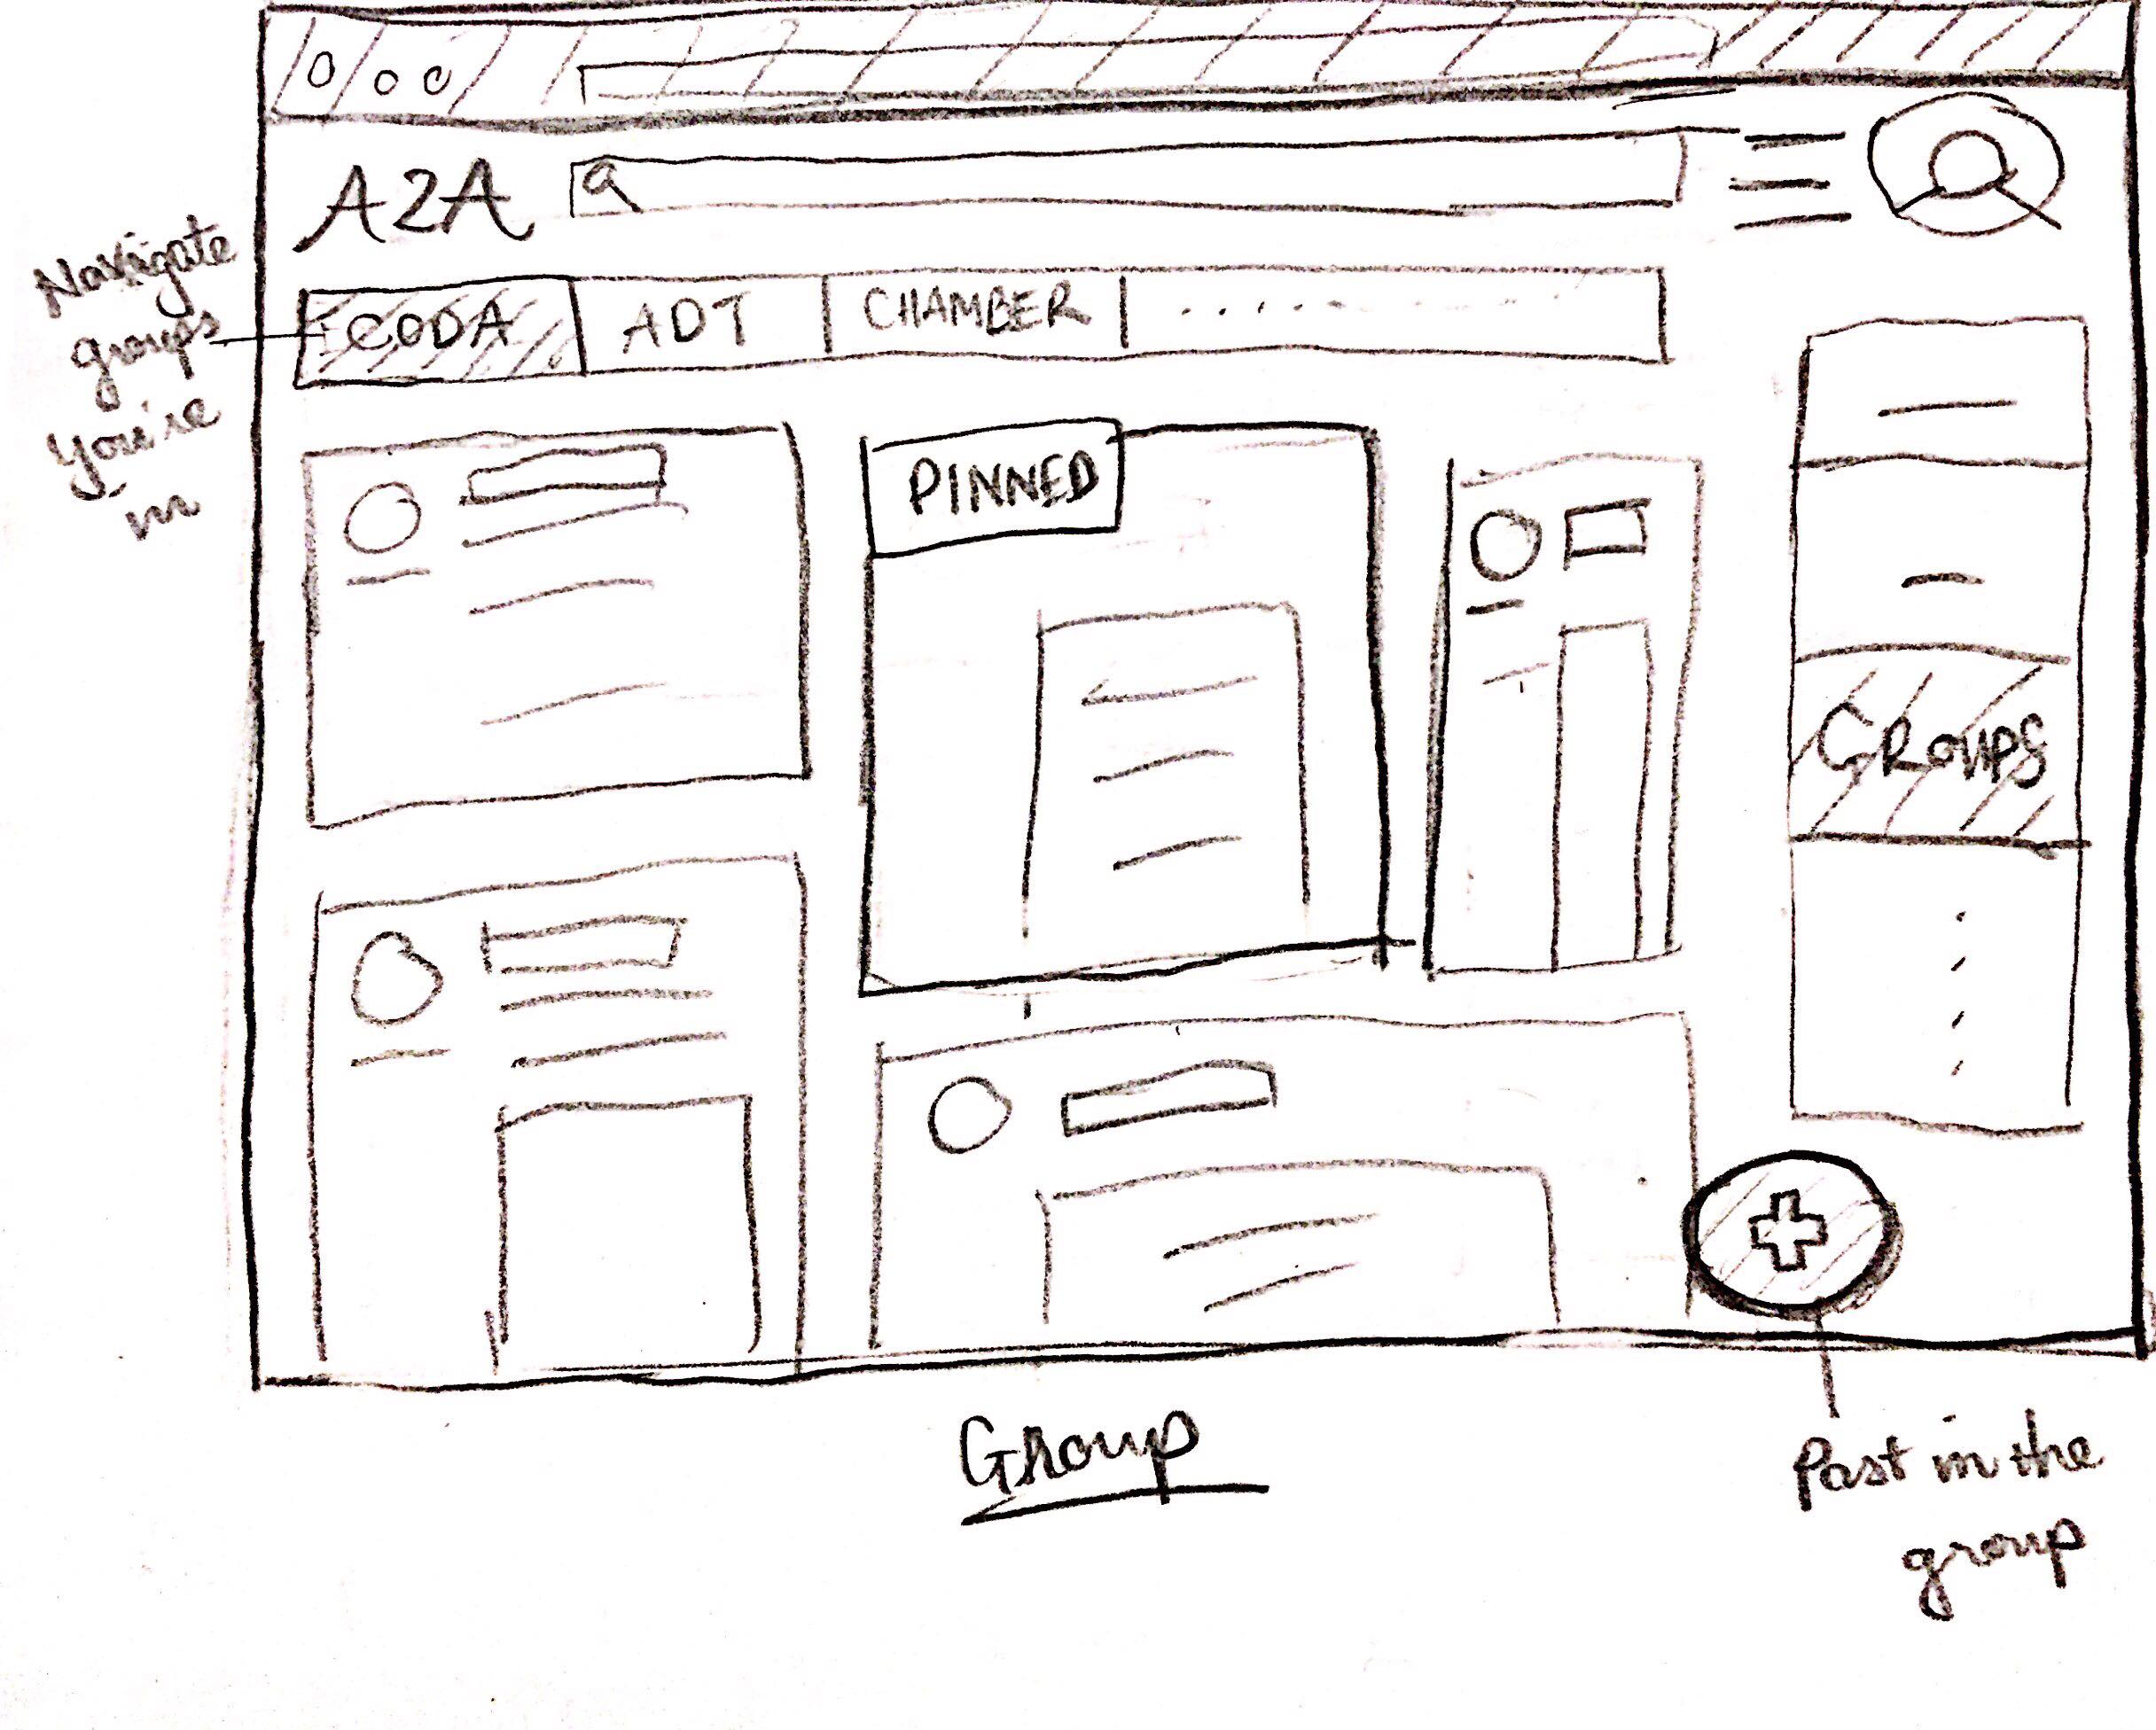 A2A
Navigate
groups
you're
in
CODA
ADT
CHAMBER
PINNED
GROUPS
Group
Post in the
group